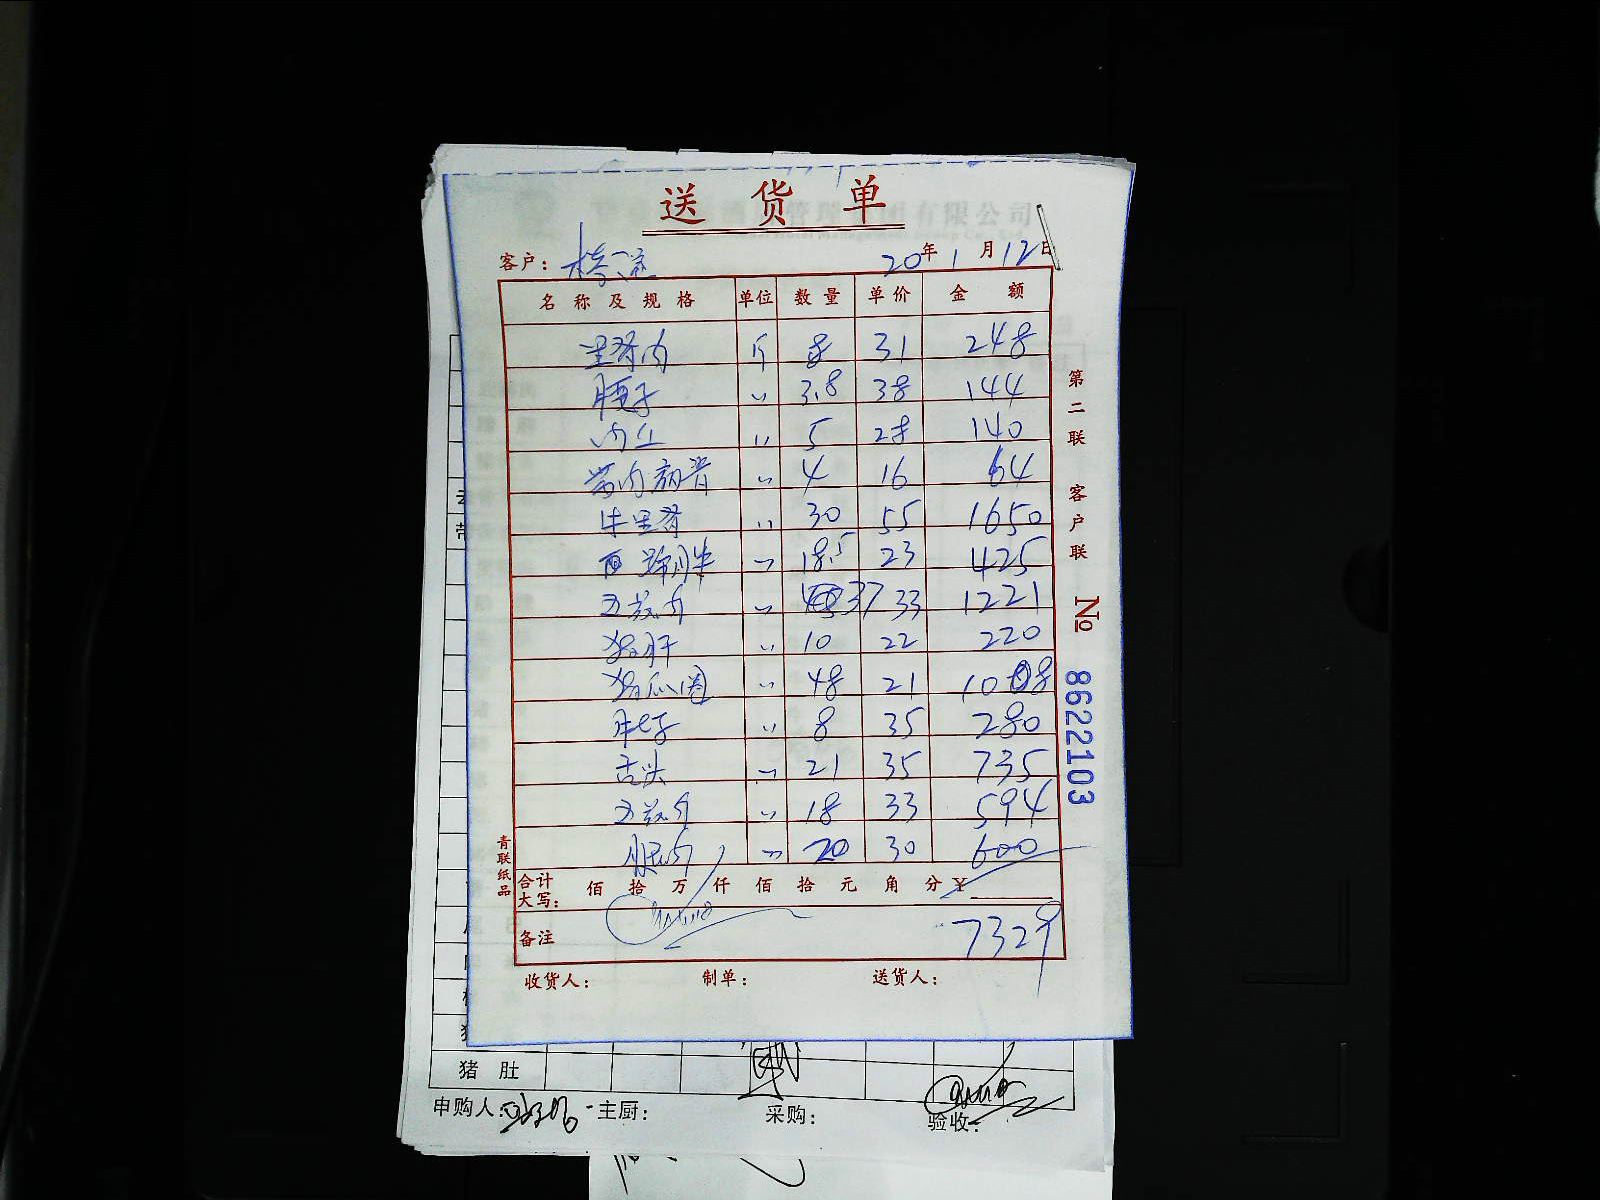 送货单
客户： 20年1月12日
名称及规格 单位 数量 单价 金额
里脊肉 斤 8 31 248
腰子 〃 3.8 38 144
肉丝 〃 5 28 140
带肉 〃 4 16 64
牛里脊 〃 30 55 1650
〃 18.5 23 425
五花肉 〃 37 33 1221
猪肝 〃 10 22 220
猪 〃 48 21 1008
肚子 〃 8 35 280
舌头 〃 21 35 735
五花肉 〃 18 33 594
腿肉 〃 20 30 600
合计大写： 佰 拾 万 仟 佰 拾 元 角 分 ¥
备注 7329
收货人： 制单： 送货人：
第二联 客户联
No 8622103
青联纸品
猪肚
申购人： 主厨： 采购： 验收：